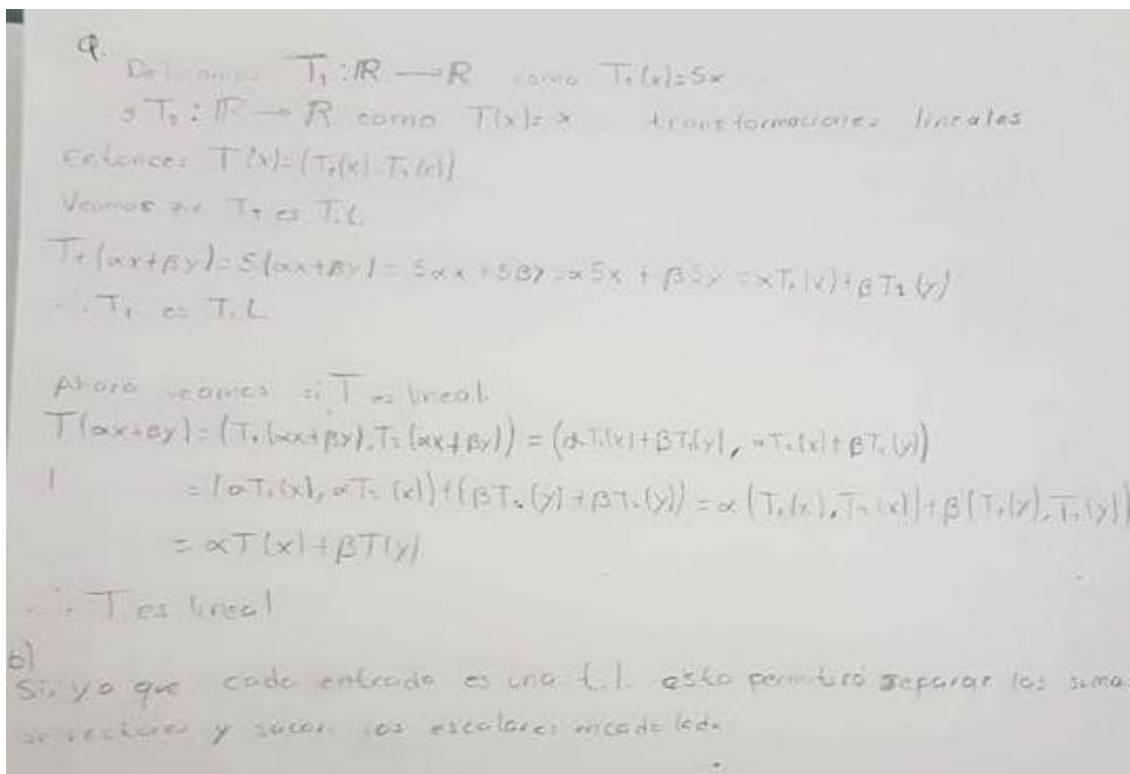 a.
Definamos T₁ : ℝ → ℝ como T₁(x)=5x
y T₂ : ℝ → ℝ como T(x)=x transformaciones lineales
entonces T(x)=(T₁(x), T₂(x))
Veamos que T₁ es T.L.
T₁(αx+βy)=5(αx+βy)=5αx+5βy=α5x+β5y=αT₁(x)+βT₁(y)
∴ T₁ es T.L
Ahora veamos si T es lineal.
T(αx+βy)=(T₁(αx+βy),T₂(αx+βy))=(αT₁(x)+βT₁(y), αT₂(x)+βT₂(y))
=(αT₁(x), αT₂(x))+(βT₁(y)+βT₂(y))=α(T₁(x),T₂(x))+β(T₁(y),T₂(y))
= αT(x)+βT(y)
∴ T es lineal
b)
Si, ya que cada entrada es una t.l. esto permitirá separar las suma
de vectores y sacar los escalares